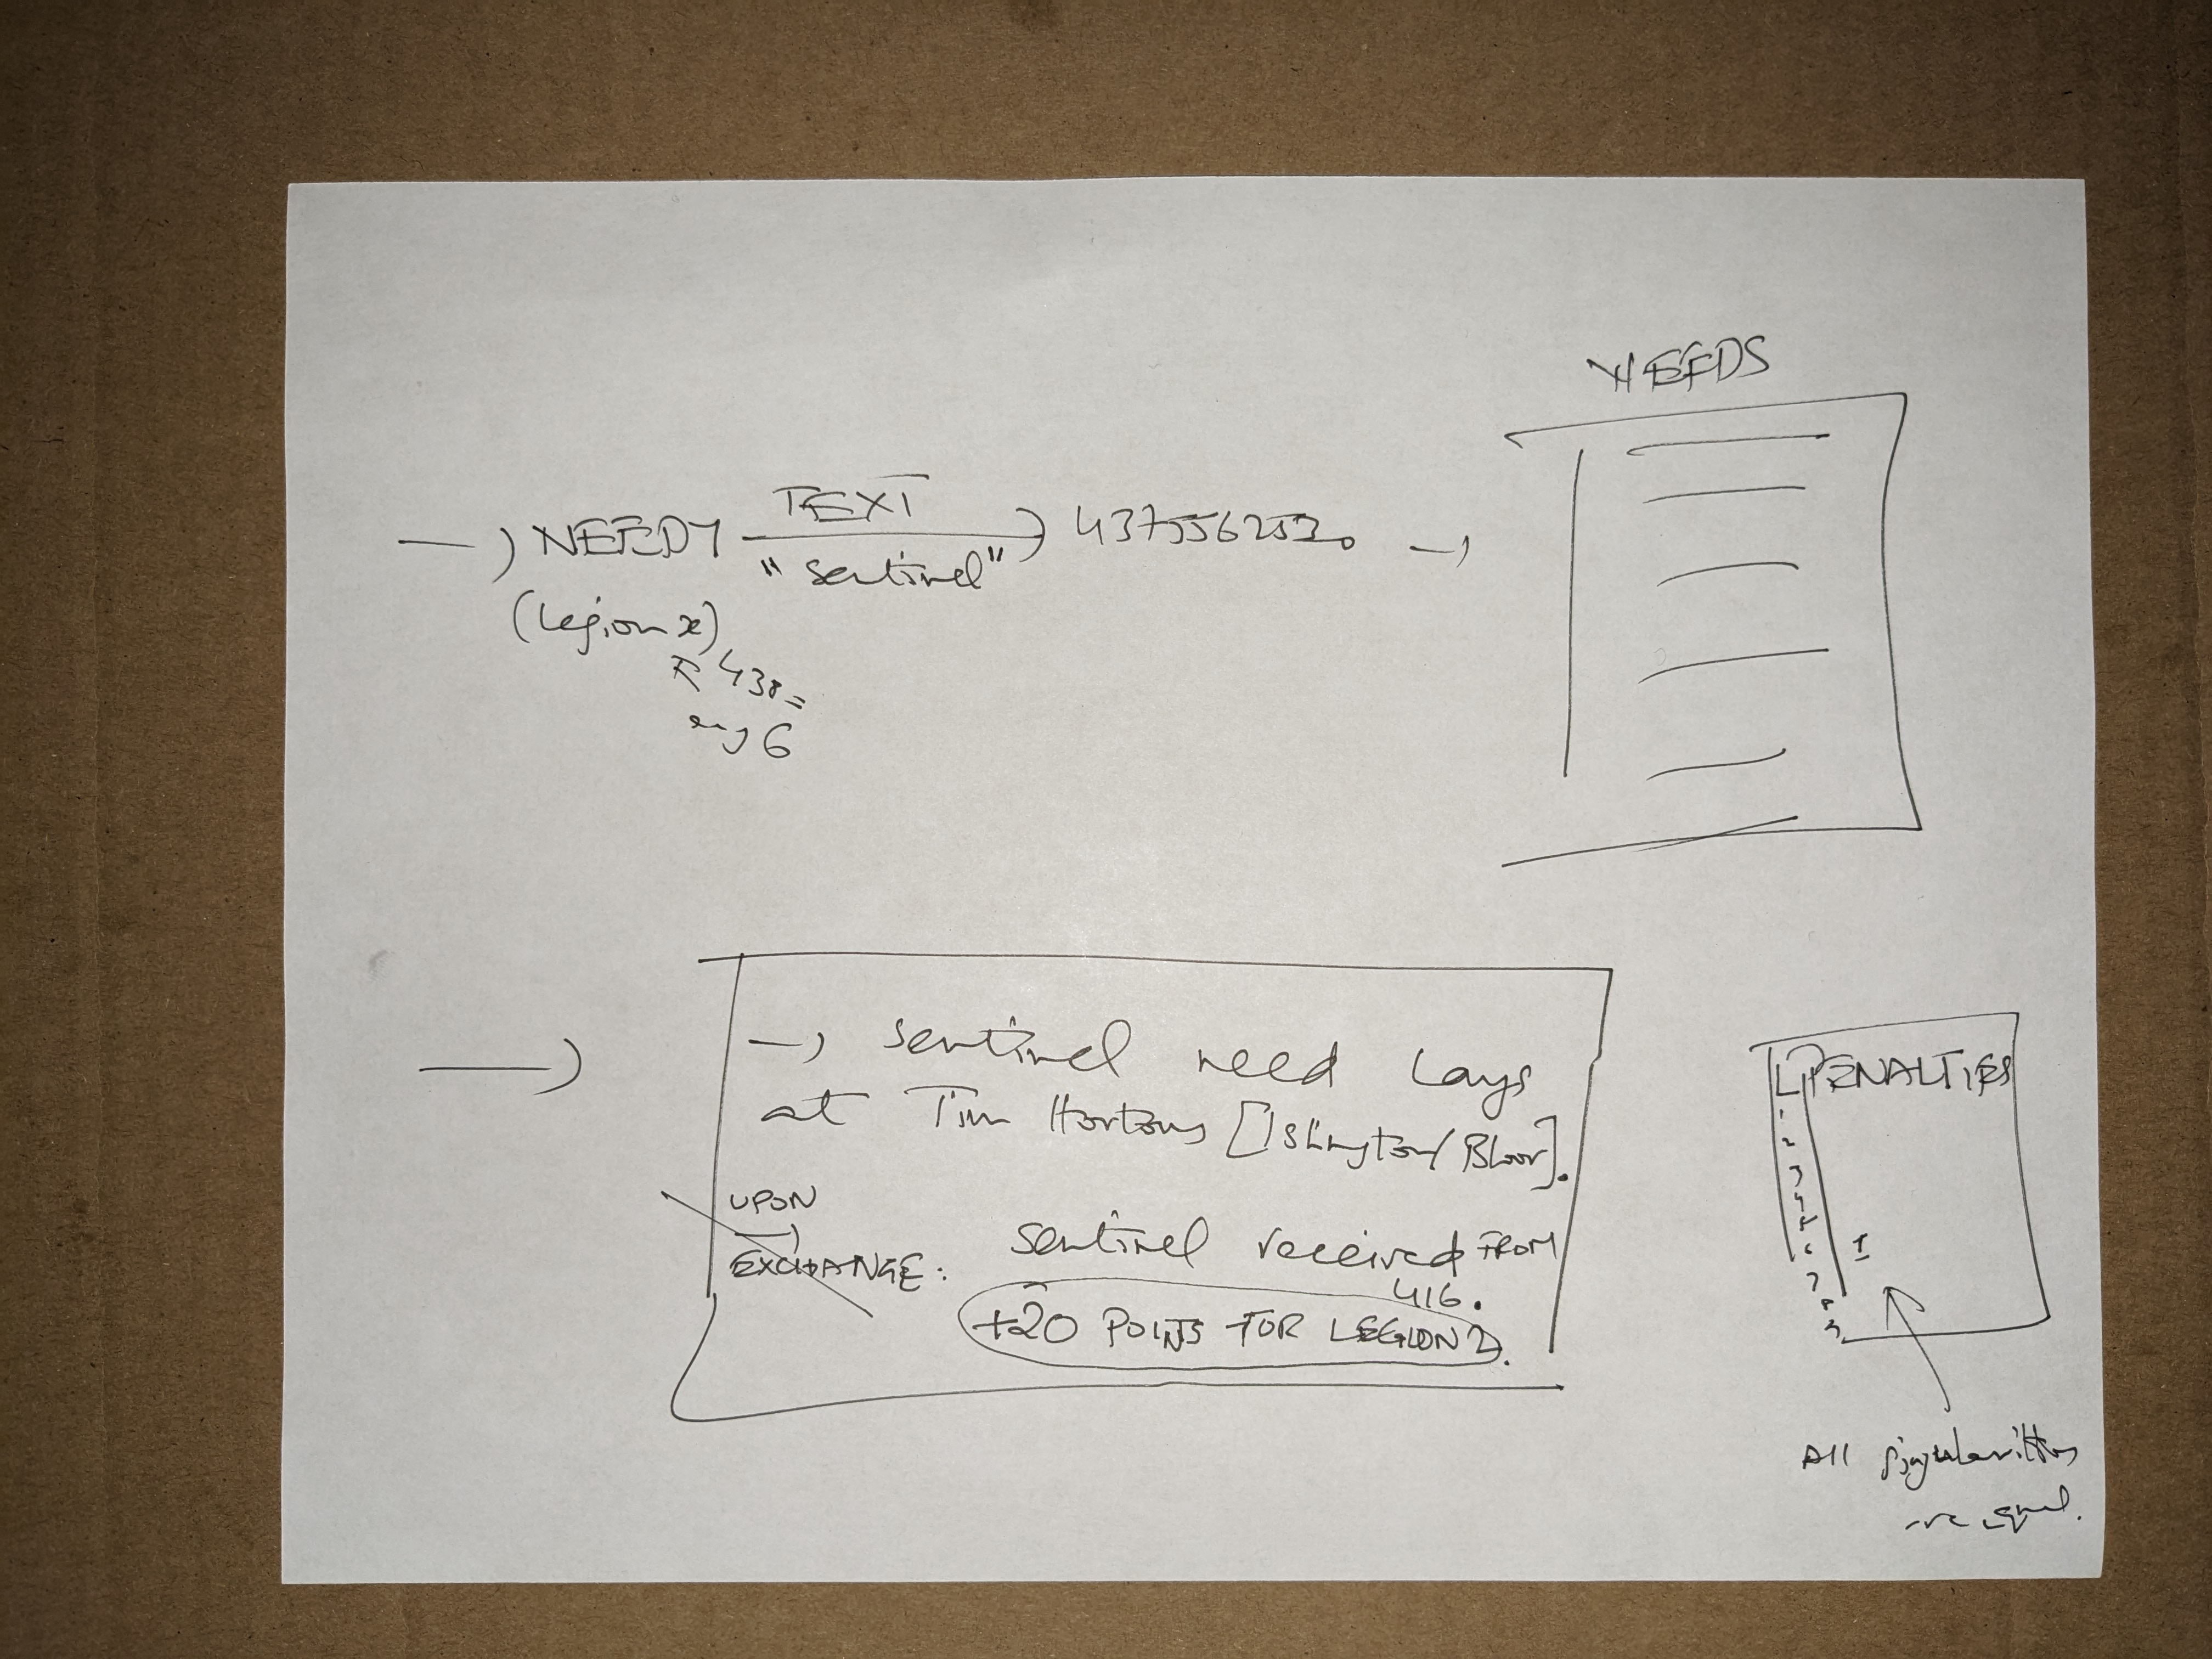 NEEDS
→ NEEDY TEXT "sentinel" → → 
(legion x)
438 =
6
→
→ sentinel need Lays
at Tim Hortons [Islington/Bloor].
UPON
→
EXCHANGE: sentinel received FROM
416.
+20 POINTS FOR LEGION 2.
L PENALTIES
1
2
3
4
5
6
7
8
9
I
All singularities
are equal.